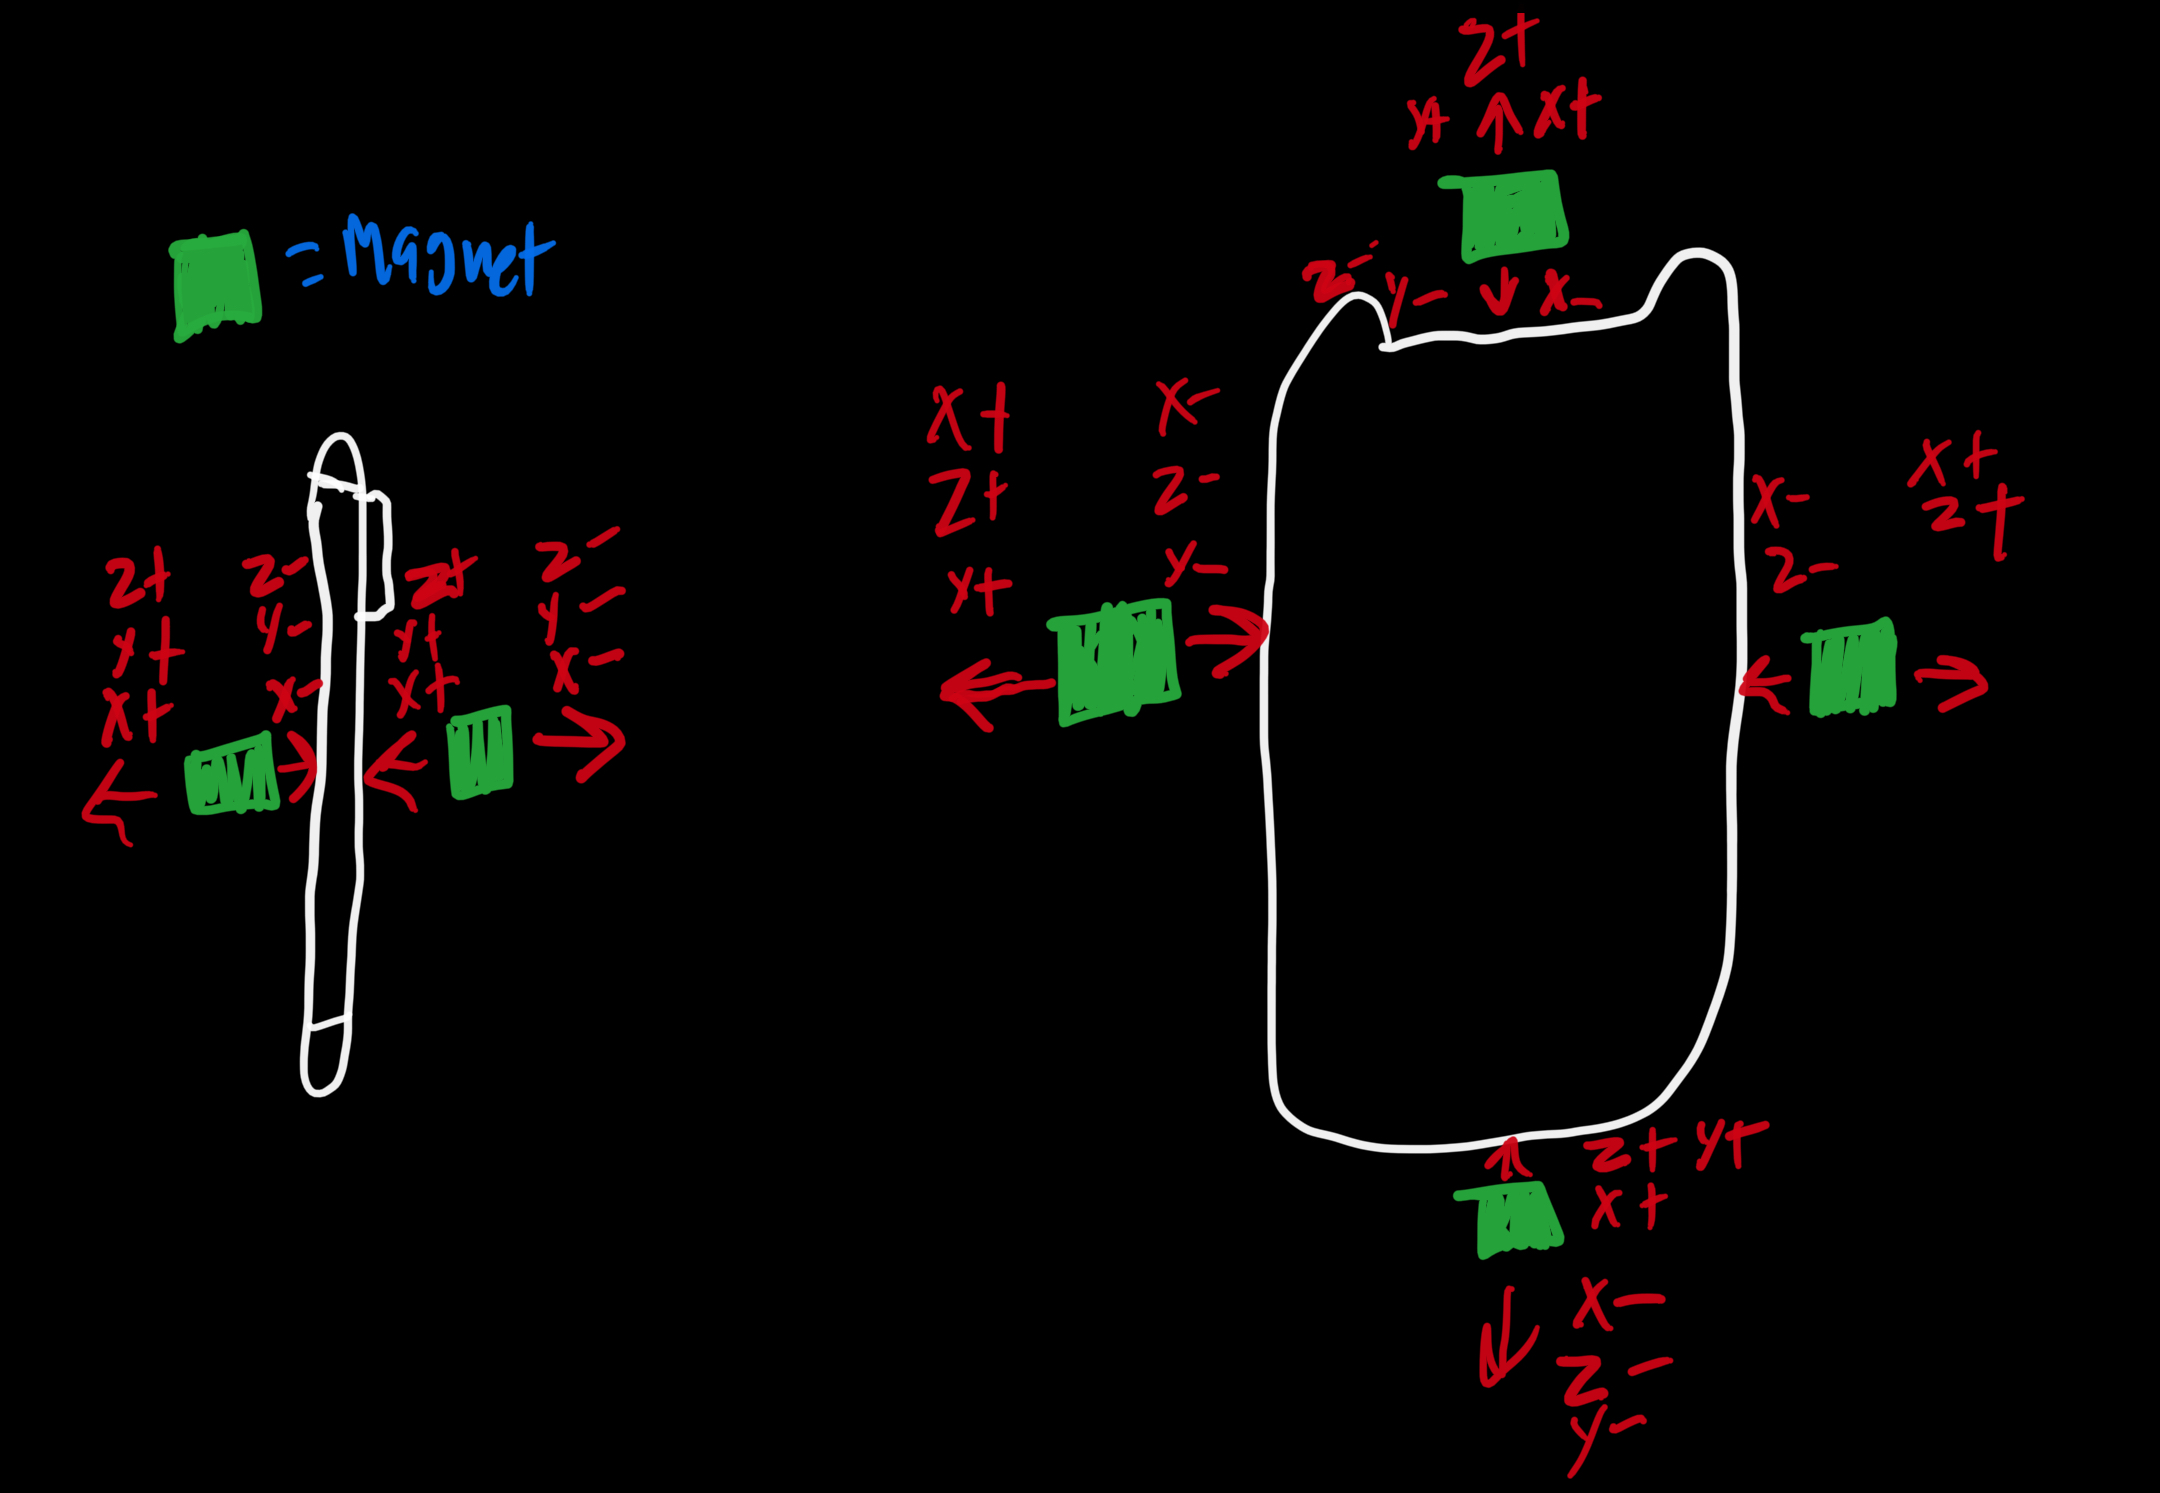 = Magnet
z+
y+
x+
z-
y-
x-
z+
y+
x+
z-
y-
x-
z+
y+ x+
z- y- x-
x+
z+
y+
x-
z-
y-
x-
z-
x+
z+
z+ y+
x+
x-
z-
y-